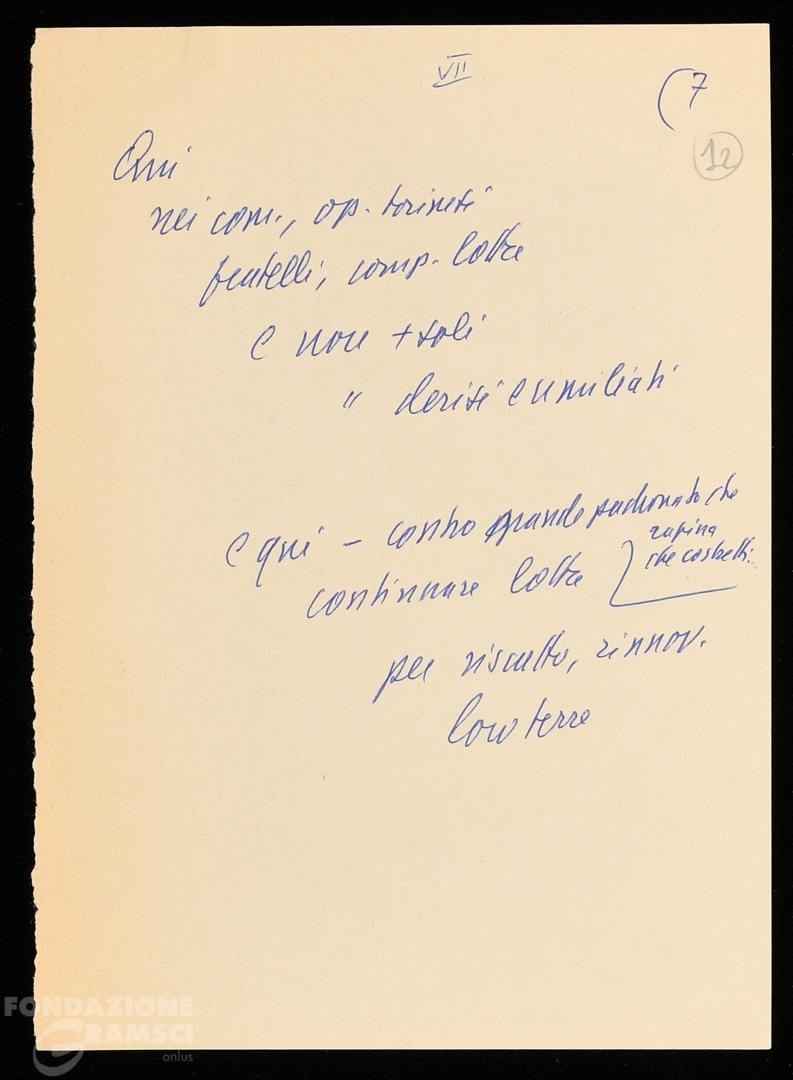 VII
(7
12
Qui
nei com., op. torinesi
fratelli, comp. lotta
e non + soli
" derisi e umiliati
e qui – contro grande padronato che
rapina
che costretti
continuare lotta
per riscatto, rinnov.
loro terre
FONDAZIONE
GRAMSCI
onlus